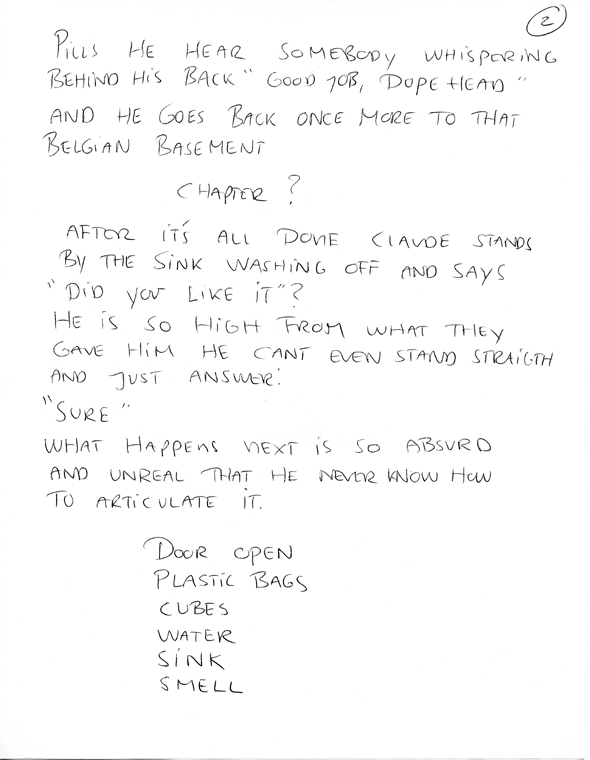 2
PILLS HE HEAR SOMEBODY WHISPERING
BEHIND HIS BACK " GOOD JOB, DOPE HEAD "
AND HE GOES BACK ONCE MORE TO THAT
BELGIAN BASEMENT
CHAPTER ?
AFTER IT'S ALL DONE CLAUDE STANDS
BY THE SINK WASHING OFF AND SAYS
" DID YOU LIKE IT "?
HE IS SO HIGH FROM WHAT THEY
GAVE HIM HE CANT EVEN STAND STRAIGTH
AND JUST ANSWER:
"SURE "
WHAT HAPPENS NEXT IS SO ABSURD
AND UNREAL THAT HE NEVER KNOW HOW
TO ARTICULATE IT.
DOOR OPEN
PLASTIC BAGS
CUBES
WATER
SINK
SMELL